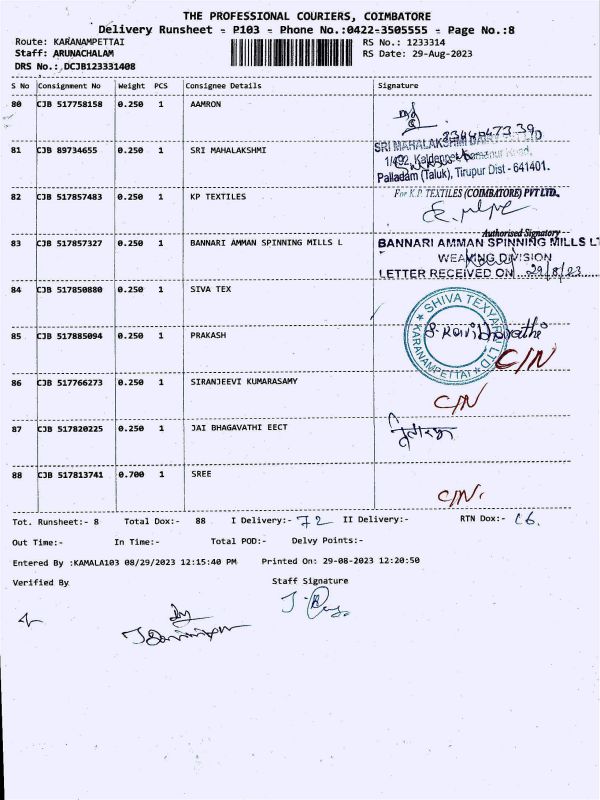 THE PROFESSIONAL COURIERS, COIMBATORE
Delivery Runsheet - P103 - Phone No.:0422-3505555 - Page No.:8
Route: KARANAMPETTAI RS No.: 1233314
Staff: ARUNACHALAM RS Date: 29-Aug-2023
DRS No.: DCJB123331408
S No Consignment No Weight PCS Consignee Details Signature
80 CJB 517758158 0.250 1 AAMRON
81 CJB 89734655 0.250 1 SRI MAHALAKSHMI
SRI MAHALAKSHMI DAIRY
Palladam (Taluk), Tirupur Dist - 641401.
82 CJB 517857483 0.250 1 KP TEXTILES
For K.P. TEXTILES (COIMBATORE) PVT LTD.,
Authorised Signatory
83 CJB 517857327 0.250 1 BANNARI AMMAN SPINNING MILLS L
BANNARI AMMAN SPINNING MILLS LT
WEAVING DIVISION
LETTER RECEIVED ON 29/8/23
84 CJB 517850880 0.250 1 SIVA TEX
SHIVA TEXYARN LTD
KARANAMPETTAI
85 CJB 517885094 0.250 1 PRAKASH
C/N
86 CJB 517766273 0.250 1 SIRANJEEVI KUMARASAMY
C/N
87 CJB 517820225 0.250 1 JAI BHAGAVATHI EECT
88 CJB 517813741 0.700 1 SREE
C/N.
Tot. Runsheet:- 8 Total Dox:- 88 I Delivery:- 72 II Delivery:- RTN Dox:- 16.
Out Time:- In Time:- Total POD:- Delvy Points:-
Entered By :KAMALA103 08/29/2023 12:15:40 PM Printed On: 29-08-2023 12:20:50
Verified By Staff Signature